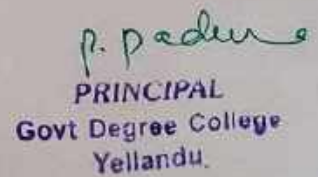 P. Padma
PRINCIPAL
Govt Degree College
Yellandu.